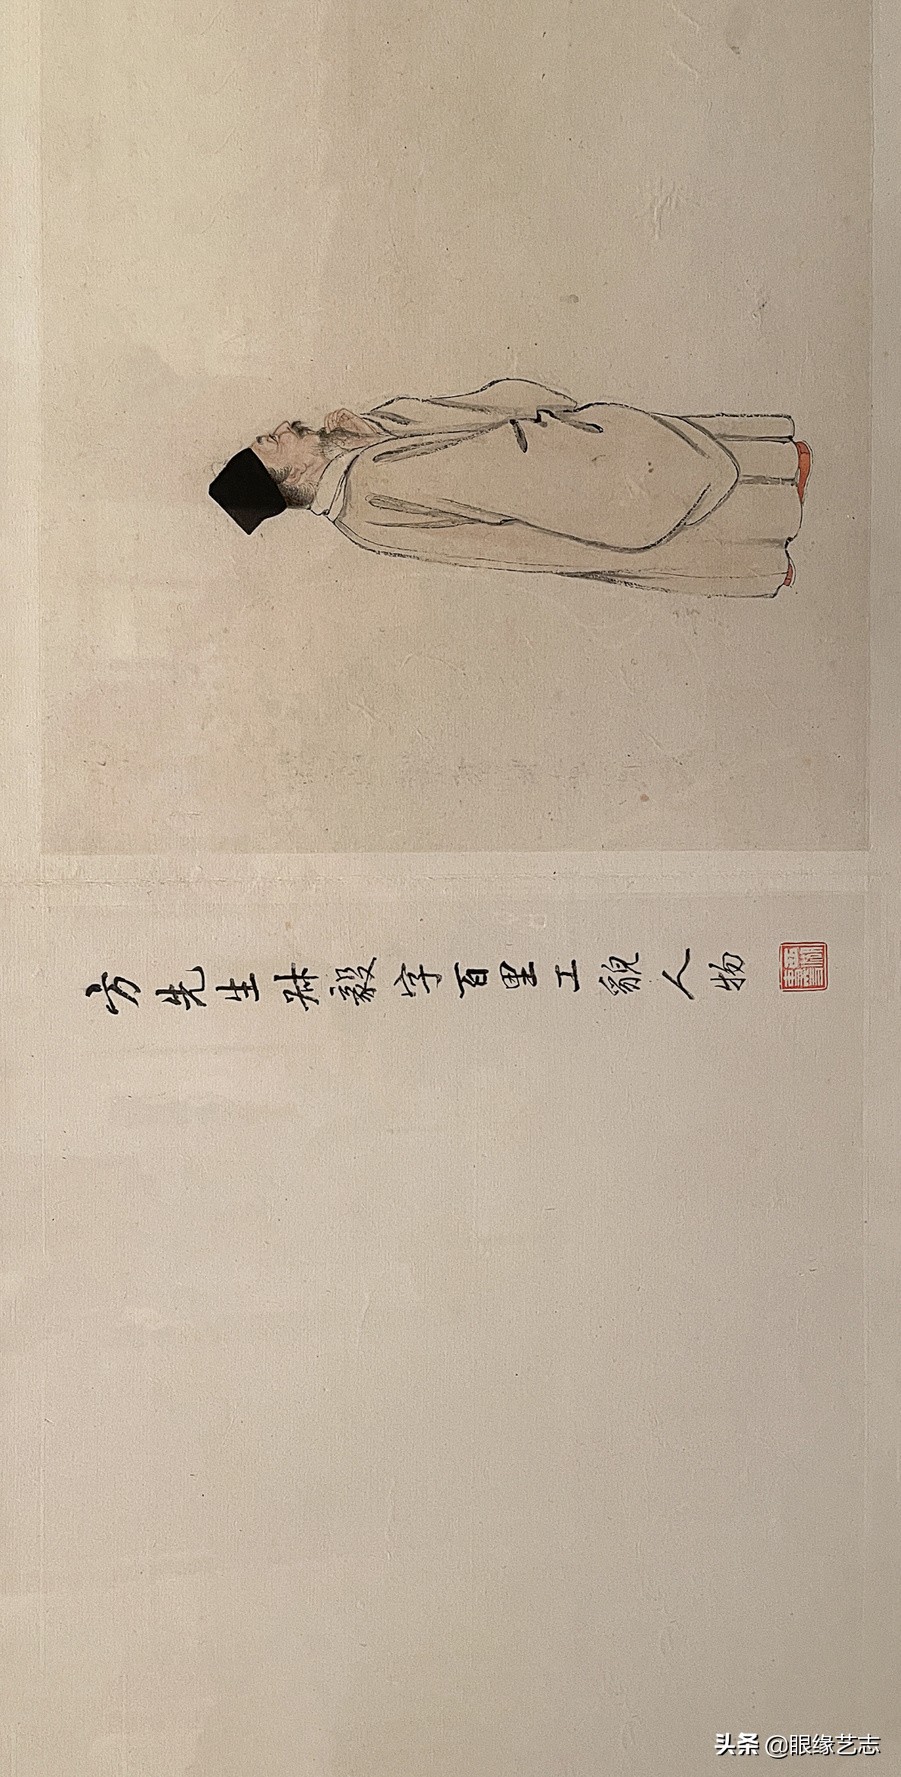 方先生叔毅字百里工貌人物
头条 @眼缘艺志